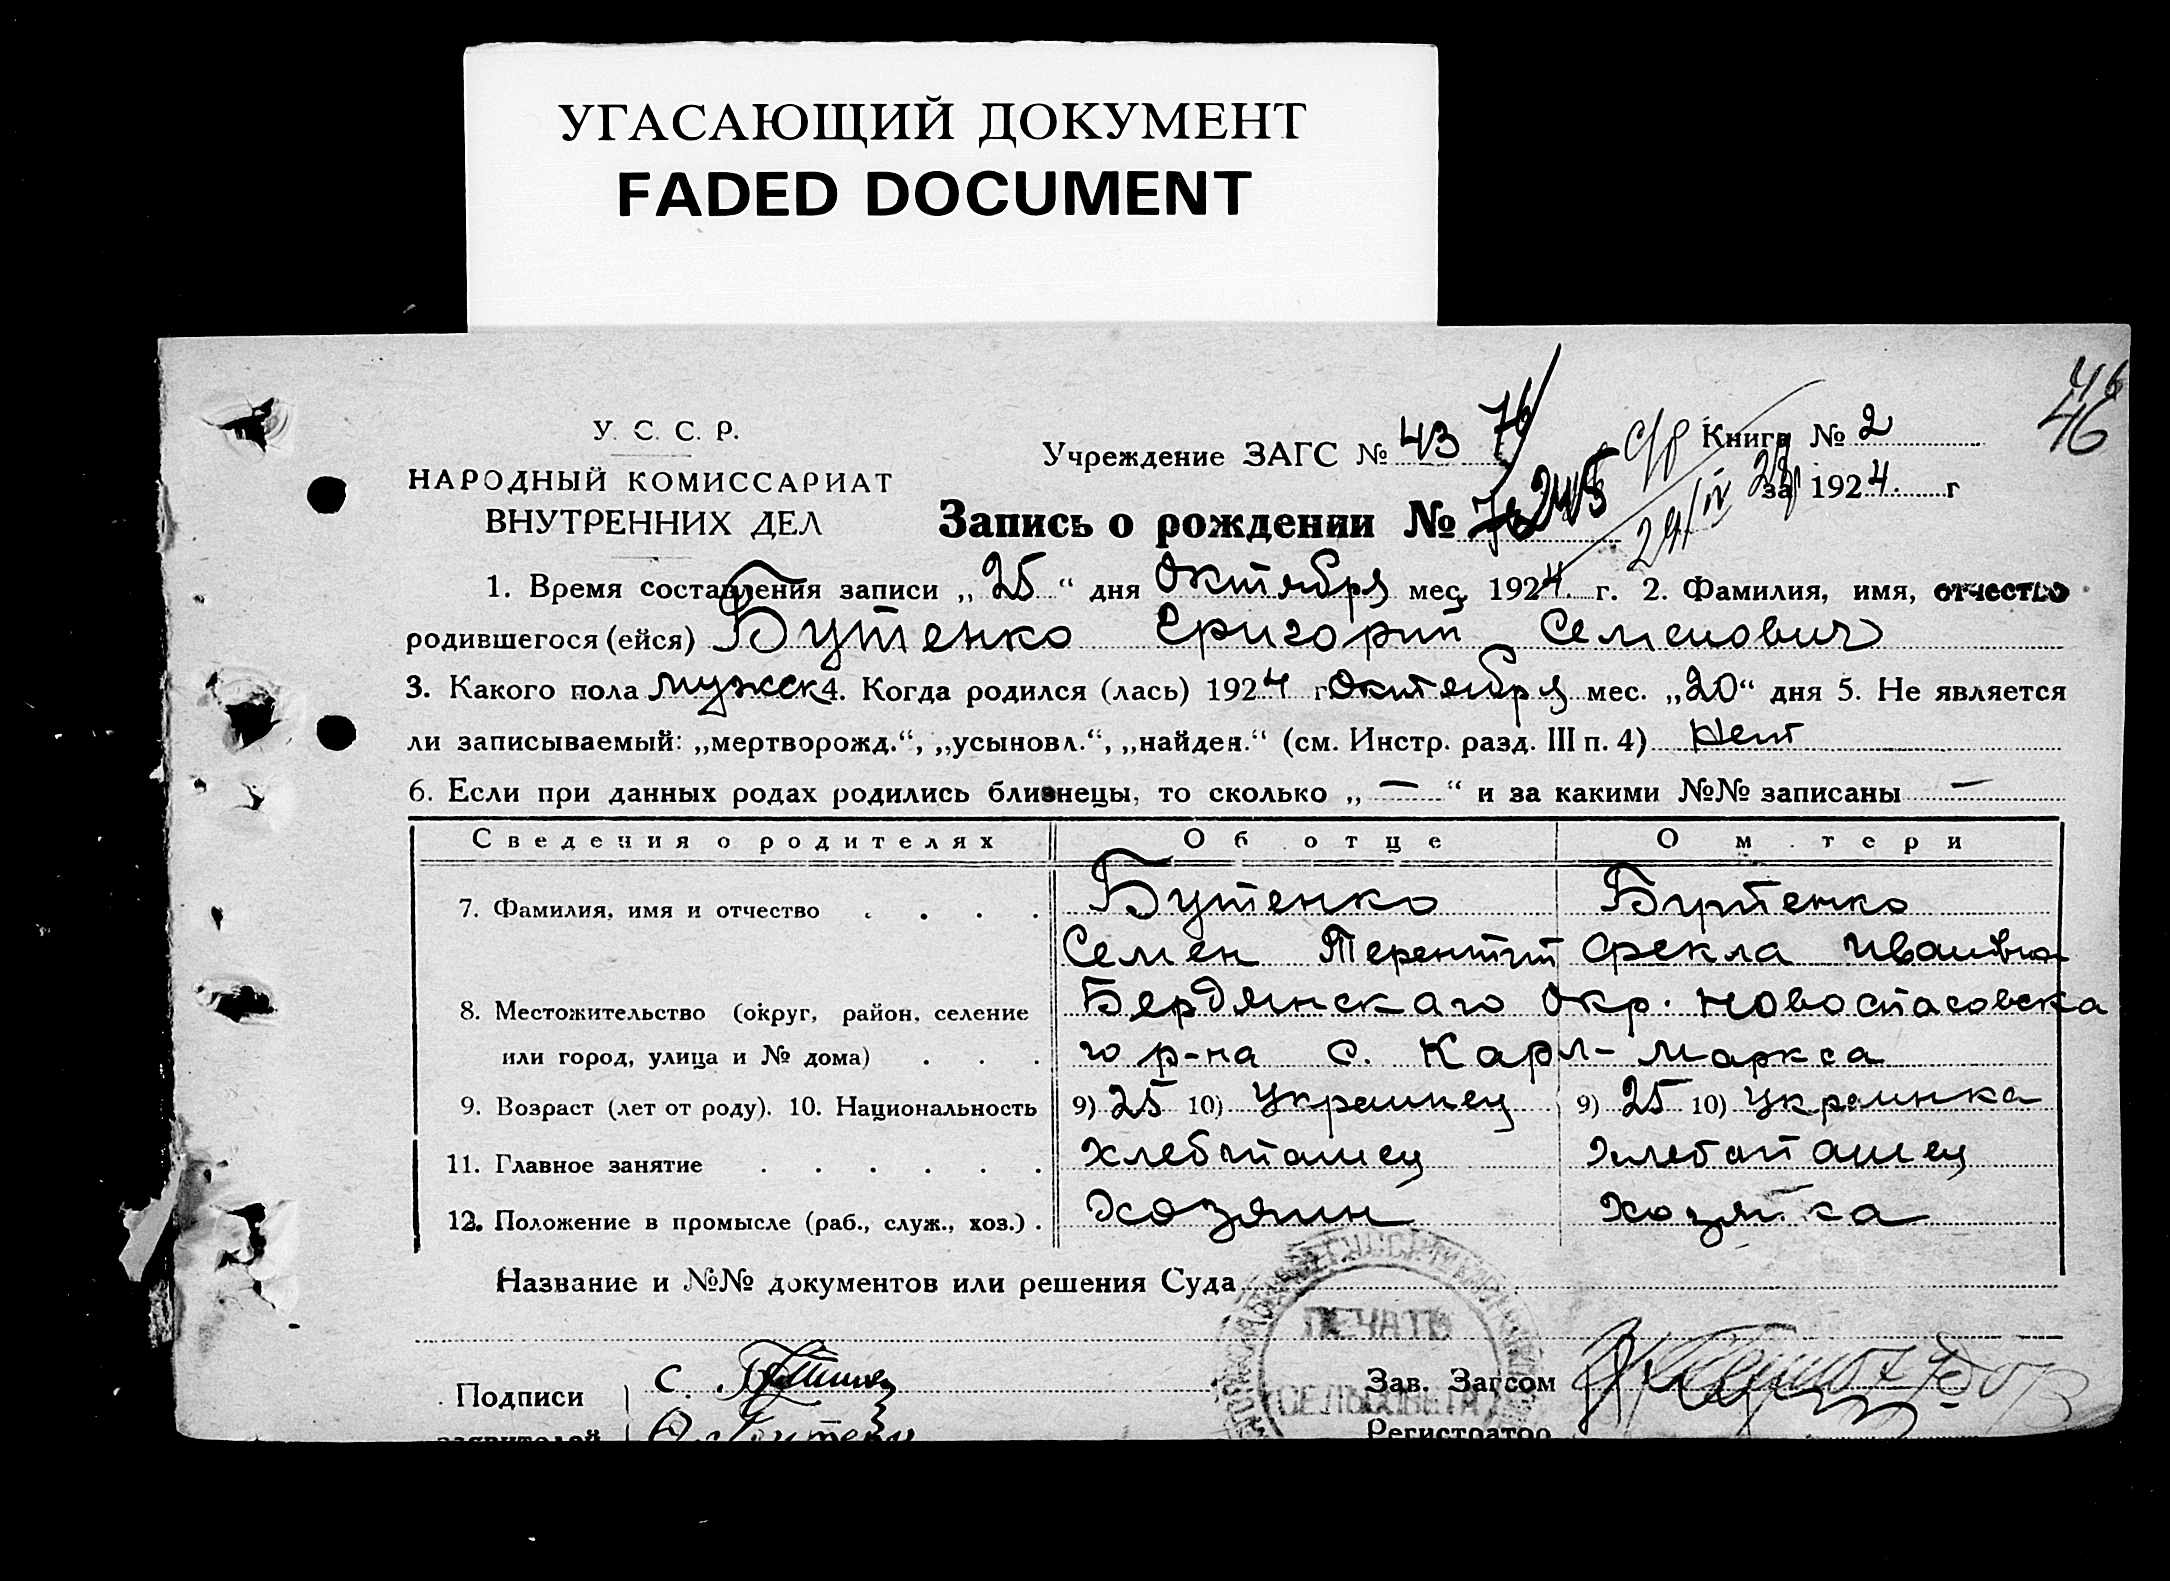 УГАСАЮЩИЙ ДОКУМЕНТ
FADED DOCUMENT
46
46
У. С. С. Р.
НАРОДНЫЙ КОМИССАРИАТ
ВНУТРЕННИХ ДЕЛ
Учреждение ЗАГС № 43 76
Книга № 2
за 1924 г
Запись о рождении № 76 245
1. Время составления записи „25“ дня Октября мес. 1924 г. 2. Фамилия, имя, отчество
родившегося (ейся) Бутенко Григорий Семенович
3. Какого пола мужск 4. Когда родился (лась) 1924 г Октября мес. „20“ дня 5. Не является
ли записываемый: „мертворожд.“, „усыновл.“, „найден.“ (см. Инстр. разд. III п. 4) Нет
6. Если при данных родах родились близнецы, то сколько „—“ и за какими №№ записаны —
Сведения о родителях Об отце О м тери
7. Фамилия, имя и отчество . . . . Бутенко Бутенко
Семен Терентий Фекла Ивановна
8. Местожительство (округ, район, селение Бердянскаго Окр. Новоспасовска
или город, улица и № дома) . . . го р-на с. Карл-Маркса
9. Возраст (лет от роду). 10. Национальность 9) 25 10) Украинец 9) 25 10) Украинка
11. Главное занятие . . . . . . хлебопашец хлебопашец
12. Положение в промысле (раб., служ., хоз.) . хозяин хозяйка
Название и №№ документов или решения Суда
ПЕЧАТЬ
СЕЛЬСОВЕТА
Подписи С. Бутенко Зав. Загсом
заявителей Регистратор